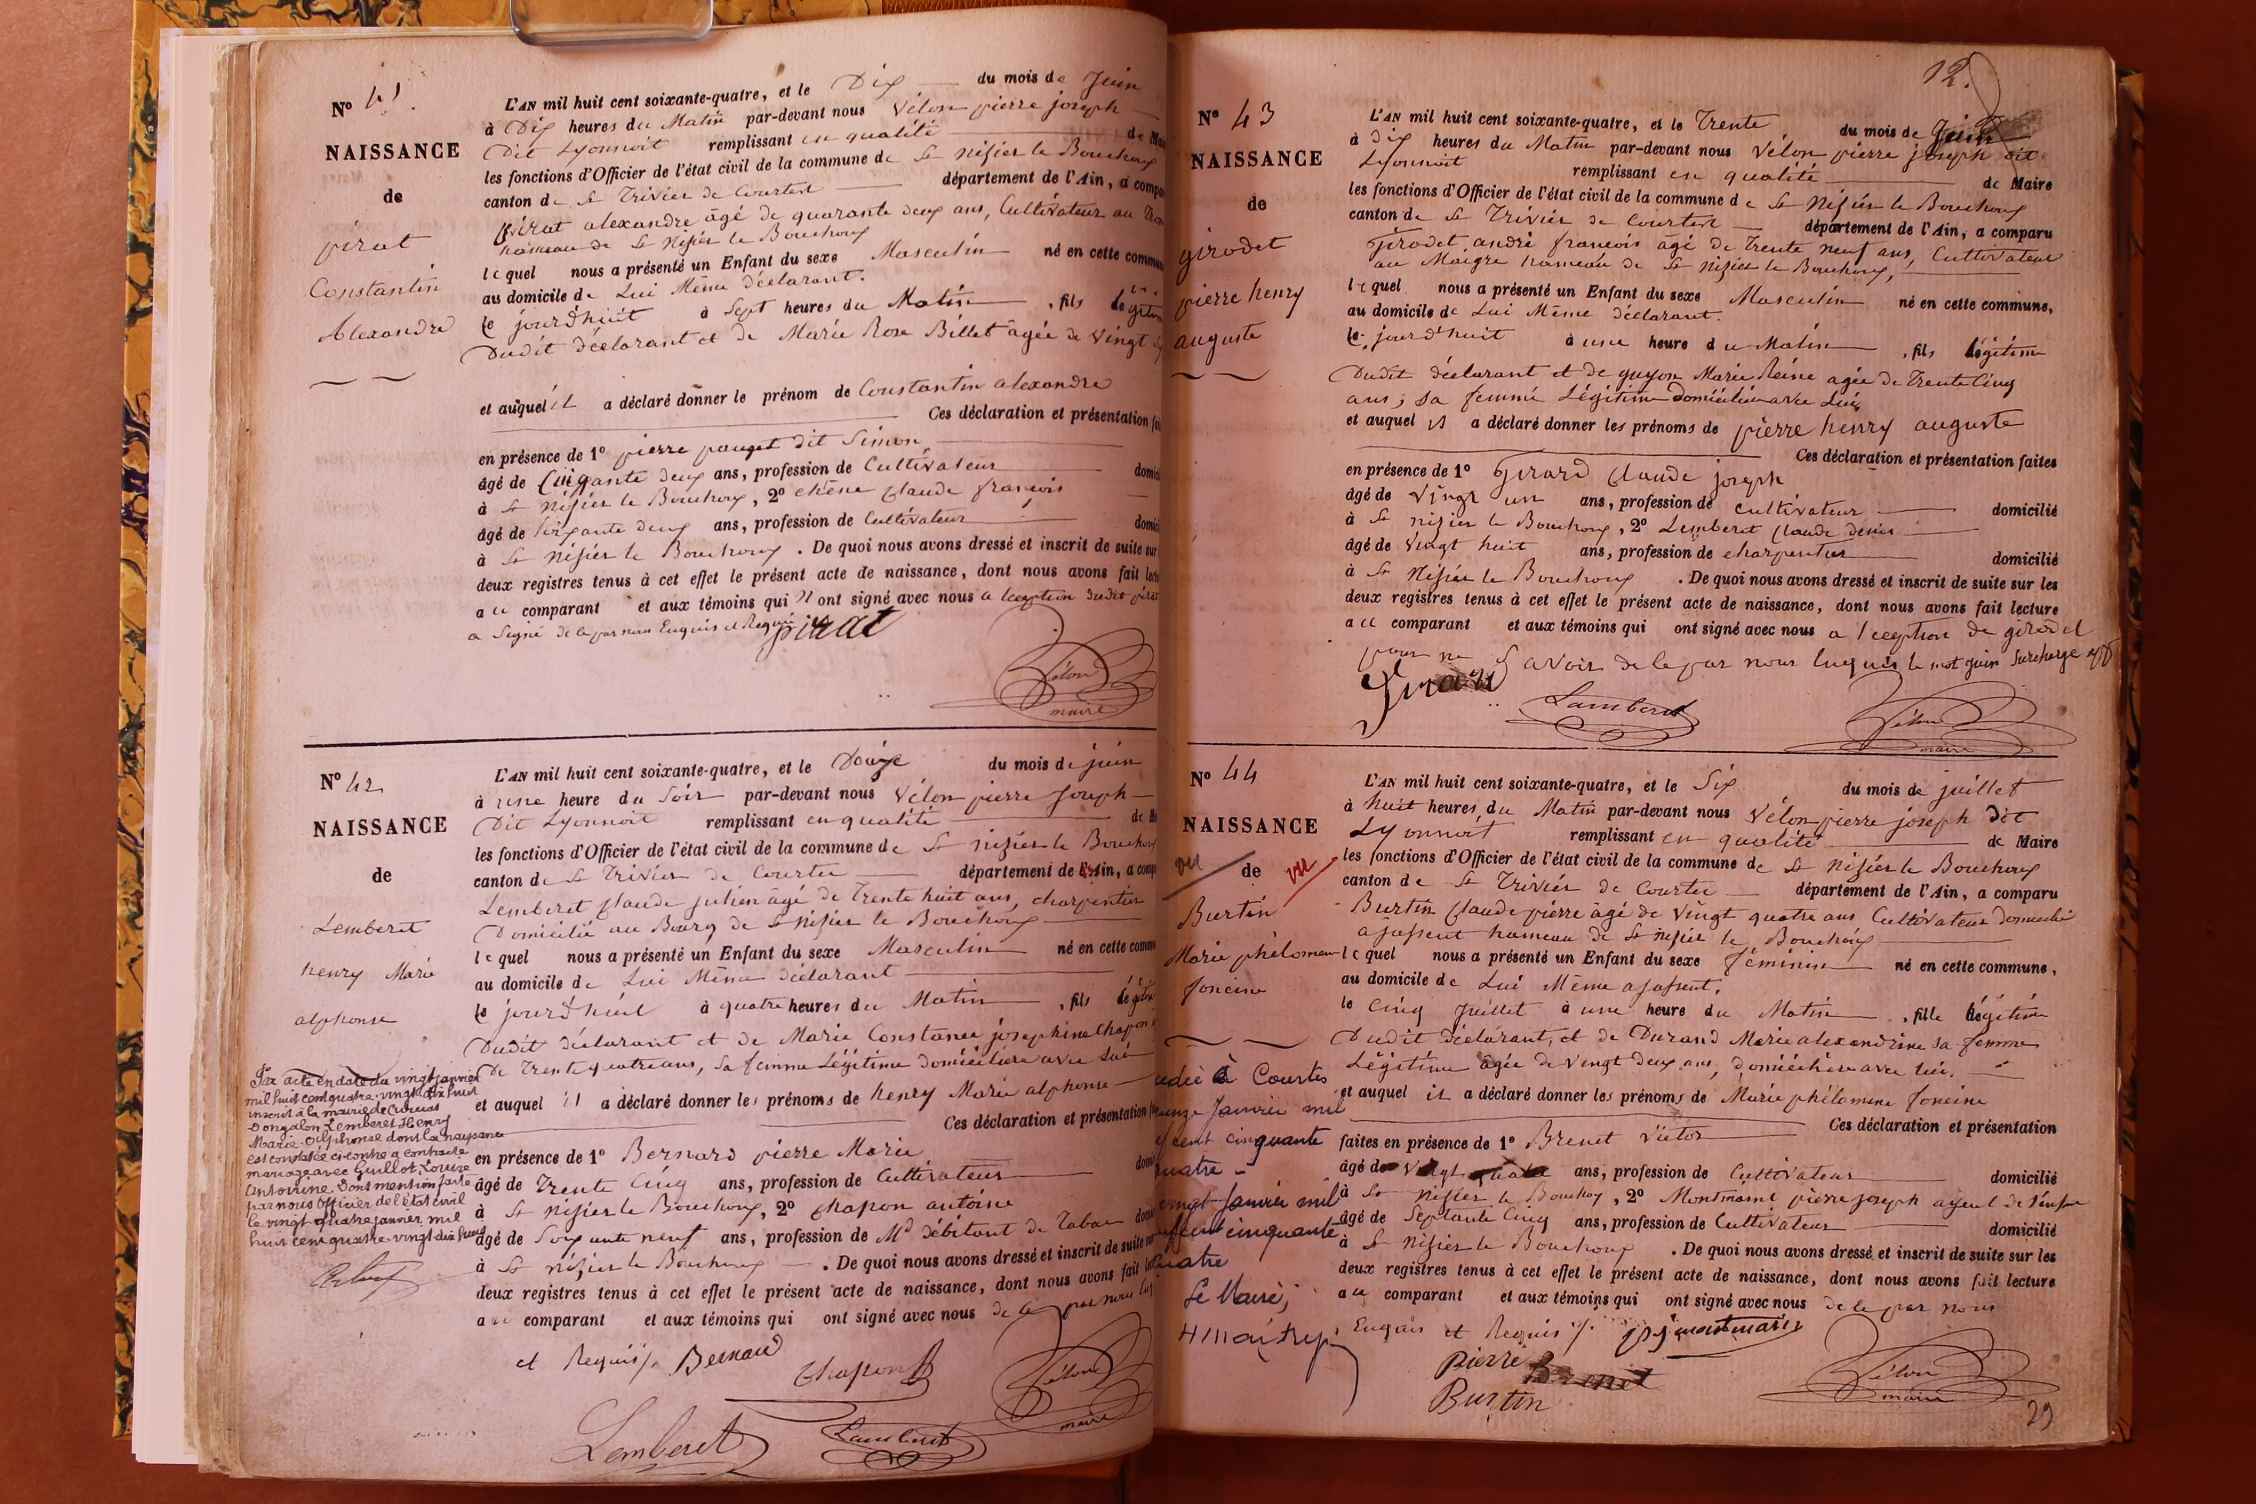 N° 41
NAISSANCE
de
pirat
Constantin
Alexandre
L'AN mil huit cent soixante-quatre, et le Dix du mois de Juin
à Dix heures du Matin par-devant nous Vélon pierre joseph
Dit Lyonnoit remplissant en qualité de
les fonctions d'Officier de l'état civil de la commune de St Nizier le Bouchoux
canton de St Trivier de Courtes département de l'Ain, a compa
pirat alexandre âgé de quarante deux ans, Cultivateur au
hameau de St Nizier le Bouchoux
lequel nous a présenté un Enfant du sexe Masculin né en cette commun
au domicile de Lui Même déclarant.
le jourd'huit à Sept heures du Matin, fils légitim
Dudit déclarant et de Marie Rose Billet âgée de Vingt
et auquel il a déclaré donner le prénom de Constantin alexandre
Ces déclaration et présentation fai
en présence de 1° pierre pauget dit Simon
âgé de Cinqante deux ans, profession de Cultivateur domici
à St Nizier le Bouchoux, 2° chêne Claude françois
âgé de Soixante deux ans, profession de Cultivateur domici
à St Nizier le Bouchoux. De quoi nous avons dressé et inscrit de suite sur
deux registres tenus à cet effet le présent acte de naissance, dont nous avons fait lectu
a ce comparant et aux témoins qui n ont signé avec nous a lception dudit pirat
a Signé de ce par nous Enquis et Requis pirat
Vélon
maire
N° 42
NAISSANCE
de
Lemberet
henry Marie
alphonse
L'AN mil huit cent soixante-quatre, et le Douze du mois de juin
à une heure du Soir par-devant nous Vélon pierre Joseph
Dit Lyonnoit remplissant en qualité de
les fonctions d'Officier de l'état civil de la commune de St nizier le Bouchoux
canton de St Trivier de Courtes département de l'Ain, a comp
Lemberet Claude julien âgé de Trente huit ans, charpentier
Domicilié au Bourg de St Nizier le Bouchoux
lequel nous a présenté un Enfant du sexe Masculin né en cette comm
au domicile de Lui Même déclarant
le jourd'huit à quatre heures du Matin, fils légitim
Dudit déclarant et de Marie Constance joséphine Chapon
De Trente quatre ans, sa femme Légitime domiciliée avec Lui
et auquel il a déclaré donner les prénoms de henry Marie alphonse
Ces déclaration et présentation
en présence de 1° Bernard pierre Marie
âgé de Trente Cinq ans, profession de Cultivateur domi
à St Nizier le Bouchoux, 2° Chapon antoine
âgé de Soixante neuf ans, profession de Md débitant de Tabac
à St Nizier le Bouchoux. De quoi nous avons dressé et inscrit de suite sur
deux registres tenus à cet effet le présent acte de naissance, dont nous avons fait
a ce comparant et aux témoins qui ont signé avec nous de ce par nous
et Requis Bernard Chapon
Vélon
maire
Lemberet Lamberet
Par acte en date du vingt janvier
mil huit cent quatre-vingt dix huit
inscrit à la mairie de
Lemberet Henry
Marie Alphonse dont la naissance
est constatée ci-contre a contracté
mariage avec Guillot Louise
Antoinine. Dont mention faite
par nous Officier de l'état civil
le vingt quatre janvier mil
huit cent quatre-vingt dix huit
12.
N° 43
NAISSANCE
de
girodet
pierre henry
auguste
L'AN mil huit cent soixante-quatre, et le Trente du mois de Juin
à Dix heures du Matin par-devant nous Vélon pierre joseph dit
Lyonnoit remplissant en qualité de Maire
les fonctions d'Officier de l'état civil de la commune de St Nizier le Bouchoux
canton de St Trivier de Courtes département de l'Ain, a comparu
Girodet andré françois âgé de Trente neuf ans, Cultivateur
au Maigre hameau de St Nizier le Bouchoux,
lequel nous a présenté un Enfant du sexe Masculin né en cette commune,
au domicile de Lui Même déclarant.
le jourd'huit à une heure du Matin, fils légitime
Dudit déclarant et de guyon Marie Reine agée de Trente Cinq
ans, sa femme Légitime domiciliée avec Lui,
et auquel il a déclaré donner les prénoms de pierre henry auguste
Ces déclaration et présentation faites
en présence de 1° Girard Claude joseph
âgé de Vingt un ans, profession de Cultivateur domicilié
à St nizier le Bouchoux, 2° Lemberet Claude denis
âgé de Vingt huit ans, profession de charpentier domicilié
à St Nizier le Bouchoux. De quoi nous avons dressé et inscrit de suite sur les
deux registres tenus à cet effet le présent acte de naissance, dont nous avons fait lecture
a ce comparant et aux témoins qui ont signé avec nous a l'ception de girodet
pour ne Savoir de ce par nous Enquis le mot juin Surchargé
Girard
Lamberet
Vélon
maire
N° 44
NAISSANCE
vu de vu
Burtin
Marie philomene
foncine
L'AN mil huit cent soixante-quatre, et le Six du mois de juillet
à huit heures du Matin par-devant nous Vélon pierre joseph Dit
Lyonnoit remplissant en qualité de Maire
les fonctions d'Officier de l'état civil de la commune de St Nizier le Bouchoux
canton de St Trivier de Courtes département de l'Ain, a comparu
Burtin Claude pierre âgé de Vingt quatre ans Cultivateur Domicilié
a jassent hameau de St Nizier le Bouchoux
lequel nous a présenté un Enfant du sexe féminin né en cette commune,
au domicile de Lui Même a jassent.
le Cinq Juillet à une heure du Matin, fille légitime
Dudit déclarant, et de Durand Marie alexandrine sa femme
Légitime âgée de Vingt deux ans, domiciliée avec lui.
et auquel il a déclaré donner les prénoms de Marie philomene foncine
Ces déclaration et présentation
faites en présence de 1° Brenet Victor
âgé de Vingt ans, profession de Cultivateur domicilié
à St Nizier le Bouchoux, 2° Montmaint pierre joseph ayeul de l'enfant
âgé de Septante Cinq ans, profession de Cultivateur domicilié
à St Nizier le Bouchoux. De quoi nous avons dressé et inscrit de suite sur les
deux registres tenus à cet effet le présent acte de naissance, dont nous avons fait lecture
a ce comparant et aux témoins qui ont signé avec nous de ce par nous
Enquis et Requis
pierre Brenet
Burtin
Vélon
maire
édée à Courtes
Janvier mil
cent cinquante
uatre
vingt Janvier mil
cent cinquante
uatre
Le Maire,
29